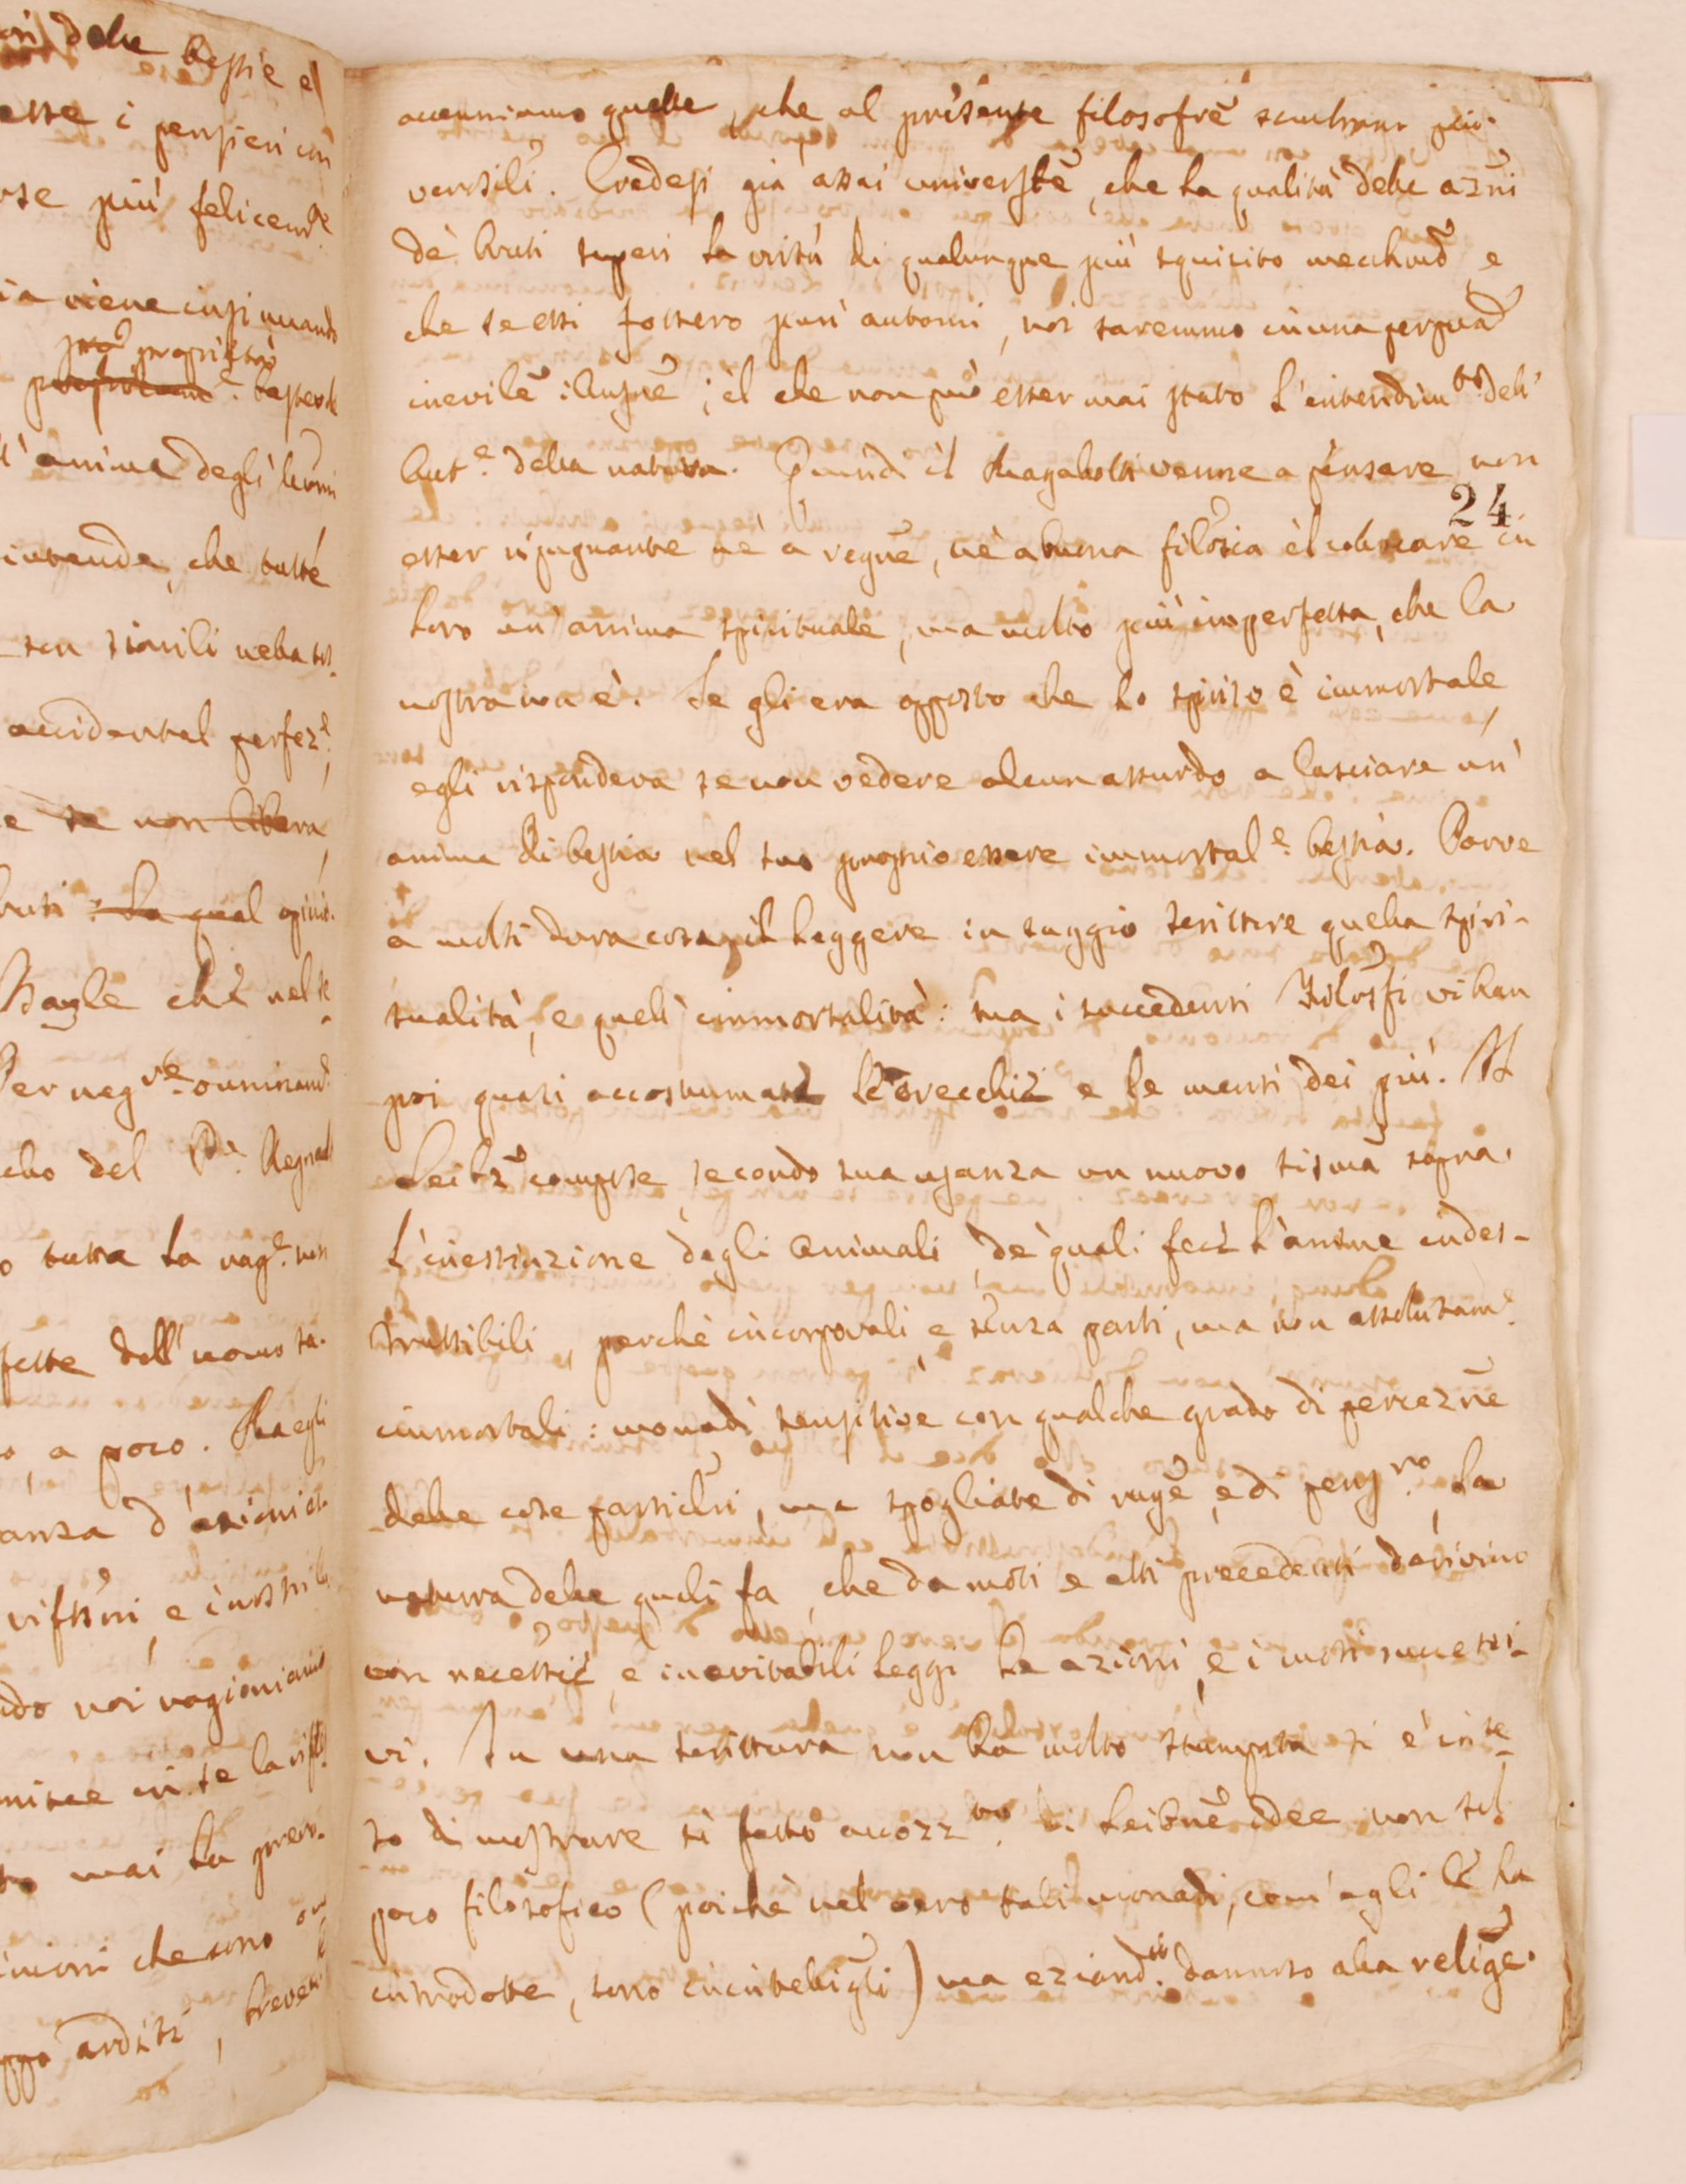 ori delle Bestie e
esse i pensieri con
rse più felicem.e
ia viene insinuando
proprietà
bestiale
l'anima degli uomini
intende, che tutte
sien simili nella sos.
accidental perfez.e
e se non libera
bruti: la qual opin.
Bayle che nel se
Per neg.re ouninamd.
cho del P.re Regnaul
o tutta la rag.e non
fesse dell'uomo sa.
o, a poco. Ma egli
anza d'azioni ch.
rifless̃ni, e inoltril
ndo noi ragioniamo
nisce in se la rifl
to mai la prem.
inioni che sono
ppo arditi, breve
accenniamo quelle, che al presente filosofrẽ sembran piu.
versili. Credesi già assai universtẽ, che la qualità delle azñi
de' bruti superi la virtù di qualunque più squisito mecchnõ, e
che se essi fossero puri automi, noi saremmo in una perpuã
inevilẽ illusñe; il che non può esser mai stato l'intendim.to dell'
Aut.e della natura. Quindi il Magalotti venne a pensare non
24
esser ripugnante nè a regñe, nè a buona filosia il collocare in
loro un'anima spirituale, ma molto più imperfetta, che la
nostra non è. Se gli era opposto che lo spirito è immortale,
egli rispondeva se non vedere alcun assurdo a lasciare un'
anima di bestia nel suo proprio essere immortal.e bestia. Parve
a molti dura cosa il leggere in saggio scrittore quella spiri-
tualità, e quell'immortalità: ma i succedenti Filosfi vi han
poi quasi accostumate le orecchie e le menti dei più. Il
Leibz.o compose, secondo sua usanza un nuovo sisma sopra
l'inestinzione degli animali, de' quali fece l'anime indes-
truttibili, perchè incorporali e senza parti, ma non assolutam.e
immortali: monadi sensitive con qualche grado di percezñe
delle cose particlri, ma spogliate di ragñe, e di pens.ro, la
natura delle quali fa, che da moti e atti precedenti derivino
con necessit̃e, e inevitabili leggi le azioni, e i moti successi-
vi. In una scrittura non ha molto stampata si è in.te-
so di mostrare sì fatto accozz.to di Leibnẽ idee non sol
poco filosofico (poichè nel vero tali monadi, com'egli le ha
introdotte, sono inintelligli) ma eziand.io dannoso alla religñe.